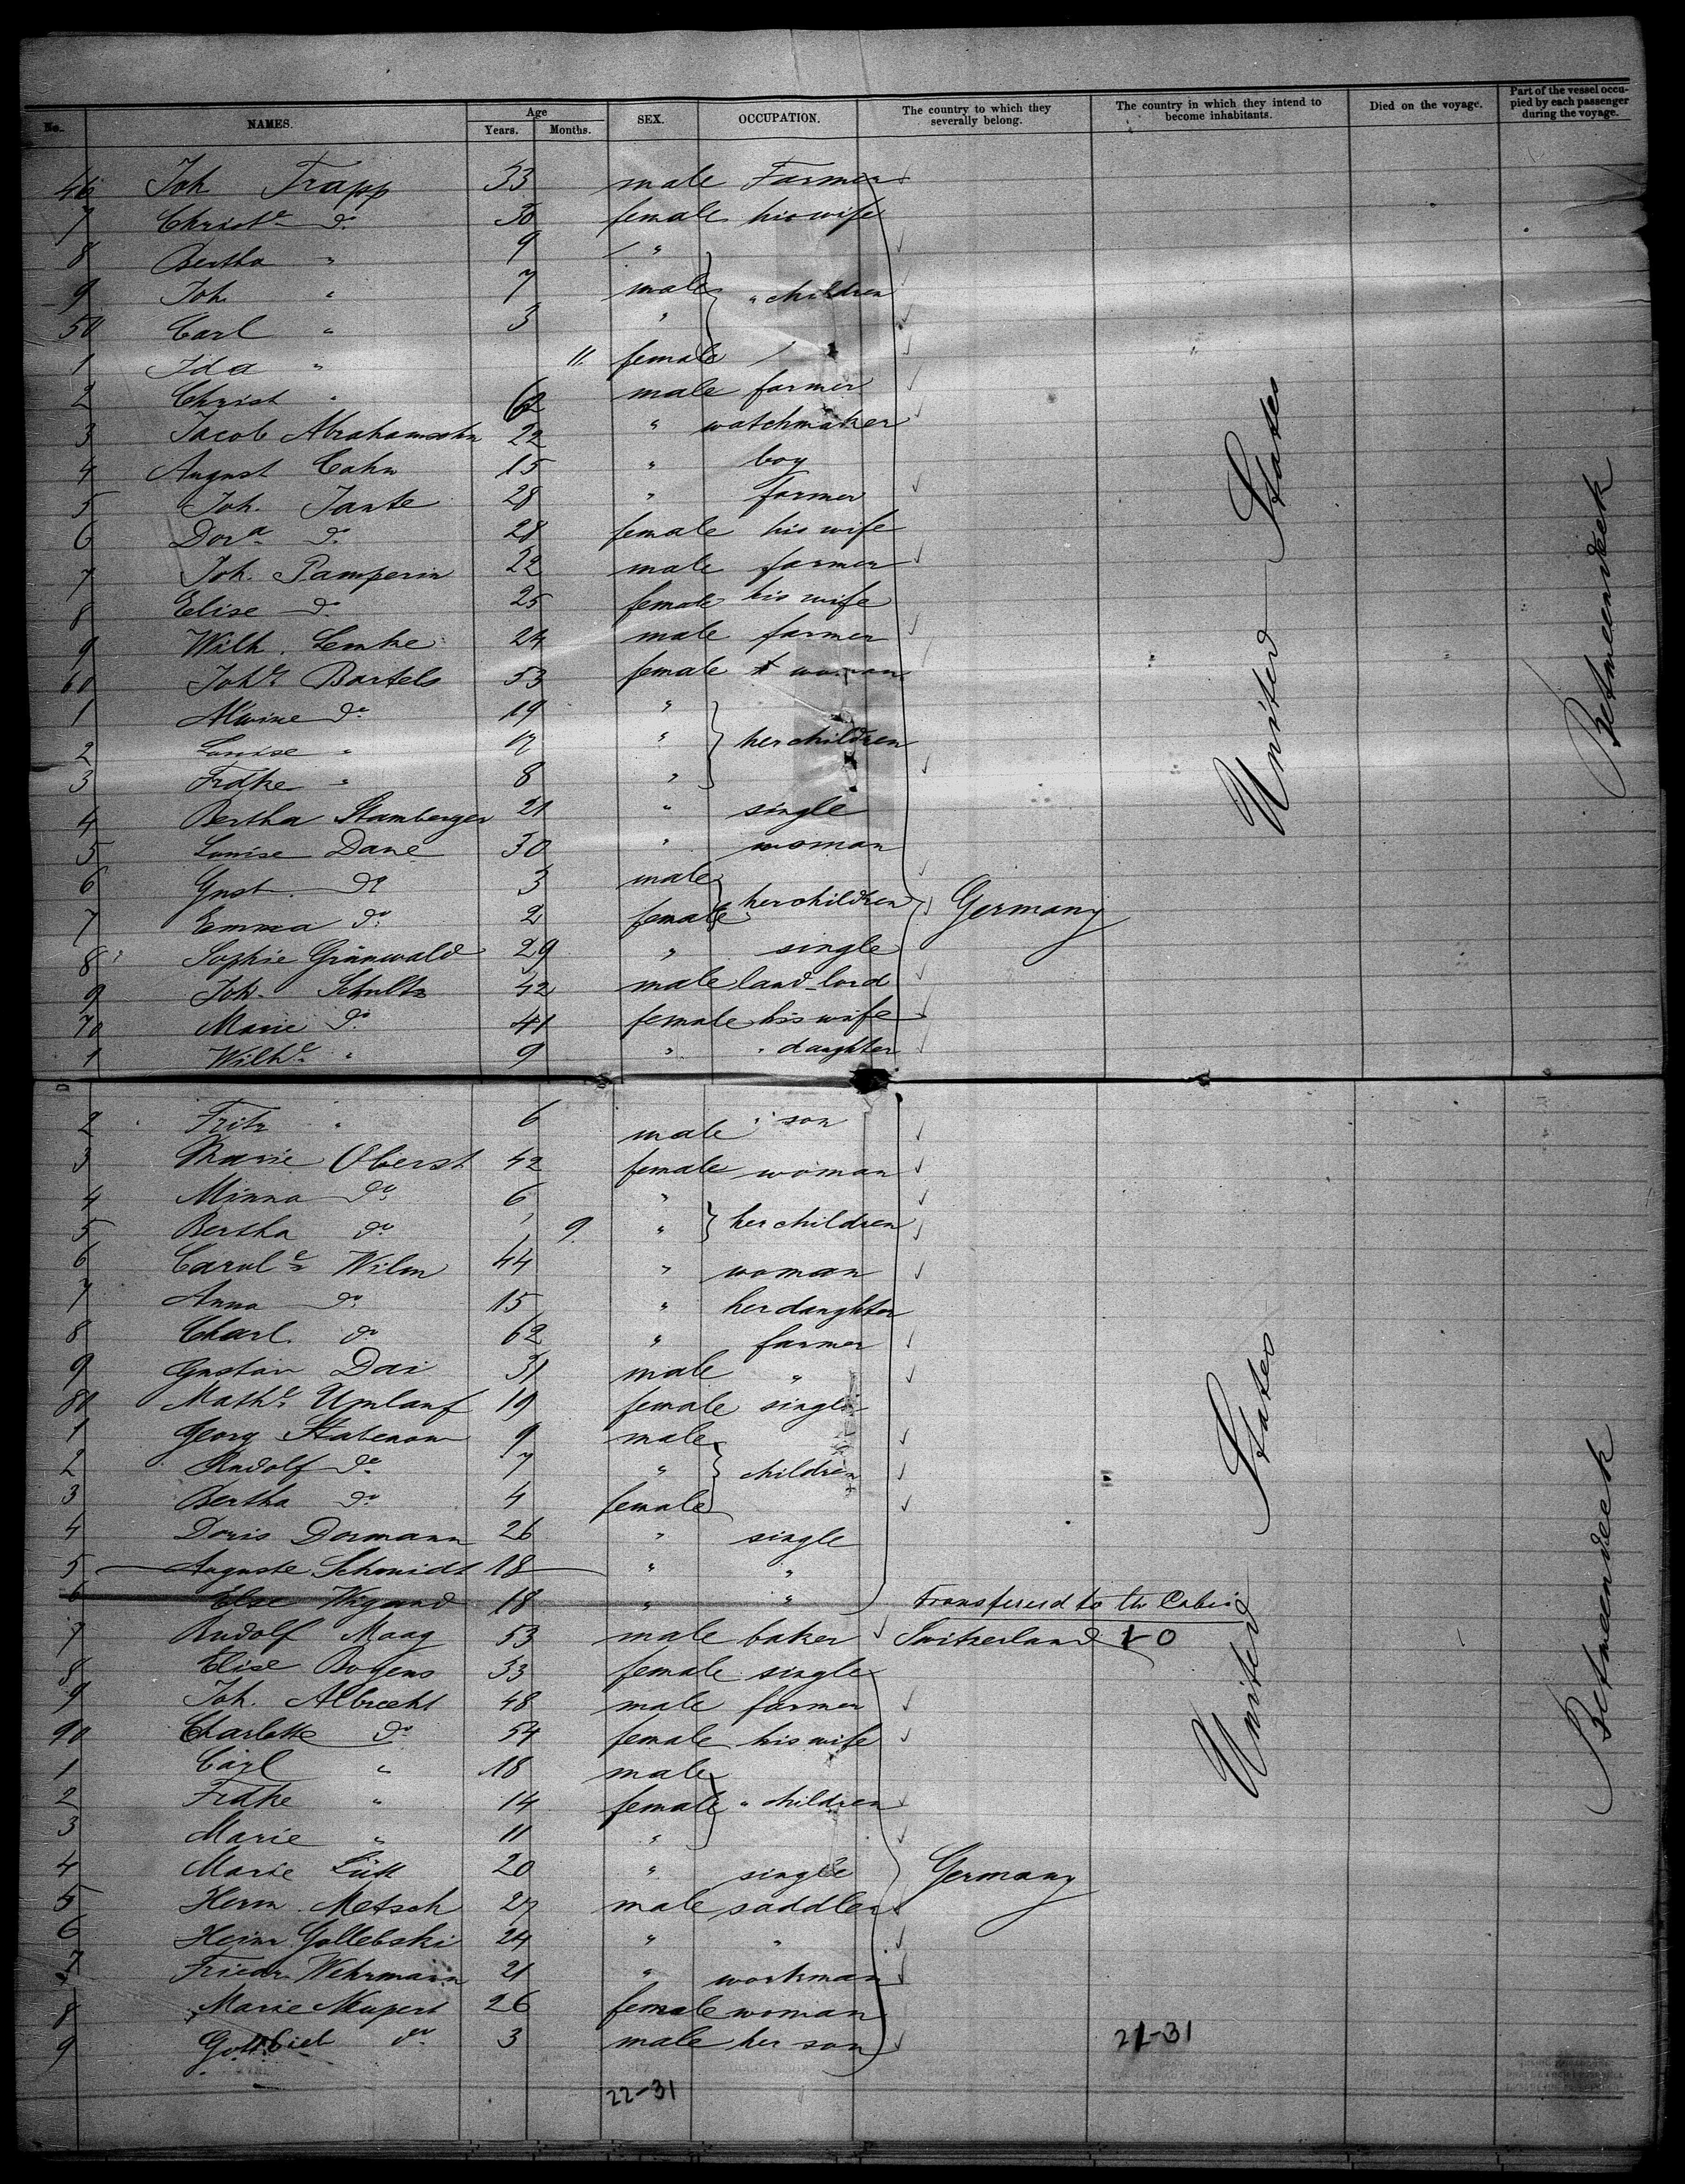 No. NAMES. Age Years. Months. SEX. OCCUPATION. The country to which they severally belong. The country in which they intend to become inhabitants. Died on the voyage. Part of the vessel occupied by each passenger during the voyage.
46 Joh Trapp 33 male Farmer
7 Christe do 30 female his wife
8 Bertha " 9 "
9 Joh. " 7 male " children
50 Carl " 3 "
1 Ida " 11 female
2 Christ " 62 male farmer
3 Jacob Abrahamsohn 22 " watchmaker
4 August Cahn 15 " boy
5 Joh. Jante 28 " farmer
6 Dora do 28 female his wife
7 Joh. Pamperin 22 male farmer
8 Elise do 25 female his wife
9 Wilh. Lemke 24 male farmer
60 Johe Bartels 53 female woman
1 Alwine do 19 "
2 Louise " 17 " her children
3 Frdke " 8 "
4 Bertha Stamberger 21 " single
5 Louise Dane 30 " woman
6 Gust. do 3 male her children
7 Emma do 2 female
Germany
8 Sophie Grünwald 29 " single
9 Joh. Schultz 42 male land-lord
70 Marie do 41 female his wife
1 Wilhe " 9 " " daughter
United States
Betweendeck
2 Fritz " 6 male " son
3 Marie Oberst 42 female woman
4 Minna do 6 "
5 Bertha do 9 " her children
6 Carole Wilm 44 " woman
7 Anna do 15 " her daughter
8 Charl. do 62 " farmer
9 Gustav Dai 31 male "
80 Mathe Umlauf 19 female single
1 Georg Stabenow 9 male
2 Rudolf do 7 " children
3 Bertha do 4 female
4 Doris Dormann 26 " single
5 Auguste Schmidt 18 " "
6 Else Wigand 18 " " Transfererd to the Cabin
7 Rudolf Maag 53 male baker Switzerland 1-0
8 Elise Bogens 33 female single
9 Joh. Albrecht 48 male farmer
90 Charlotte do 54 female his wife
1 Carl " 18 male
2 Frdke " 14 female " children
3 Marie " 11 "
4 Marie Lütt 20 " single
Germany
5 Herm. Metsch 27 male saddler
6 Heinr Gollebski 24 " "
7 Friedr. Wehrmann 21 " workman
8 Marie Neupert 26 female woman
9 Gottlieb do 3 male her son
United States
Betweendeck
21-31
22-31